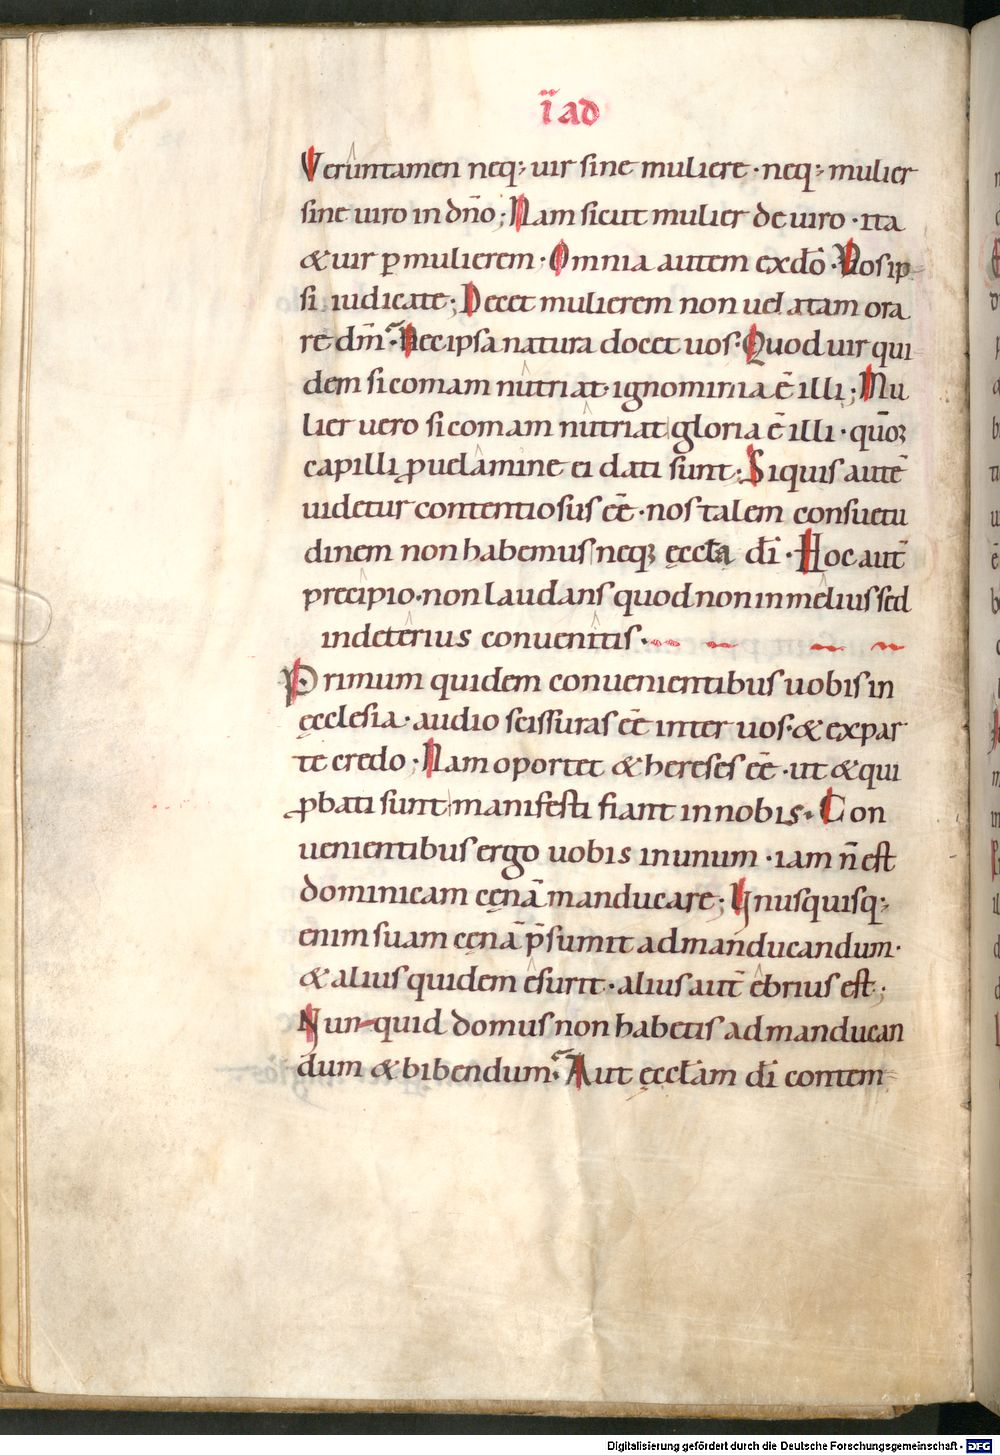 ī ad
Veruntamen neq; uir sine muliere · neq; mulier
sine uiro in dño; Nam sicut mulier de uiro · ita
& uir p mulierem · Omnia autem ex dō · Vos ip
si iudicate; Decet mulierem non uelatam ora
re dm̄ · Nec ipsa natura docet uos · Quod uir qui
dem si comam nutriat · ignominia ē illi; Mu
lier uero si comam nutriat gloria ē illi · qūo
capilli ꝓ uelamine ei dati sunt · Siquis autē
uidetur contentiosus eē · nos talem consuetu
dinem non habemus neq; ęccła dī · Hoc aut̄
precipio · non laudans quod non in melius sed
in deterius conuenitis ·
Primum quidem conuenientibus uobis in
ęcclesia · audio scissuras eē inter uos · & ex par
te credo · Nam oportet & hereses eē · ut & qui
ꝓbati sunt manifesti fiant in nobis · Con
uenientibus ergo uobis in unum · iam ñ est
dominicam cęnā manducare; Unusquisq;
enim suam cęnā p̄sumit ad manducandum ·
& alius quidem esurit · alius aut̄ ebrius est;
Nunquid domus non habetis ad manducan
dum & bibendum · Aut ęccłam dī contem
Digitalisierung gefördert durch die Deutsche Forschungsgemeinschaft - DFG